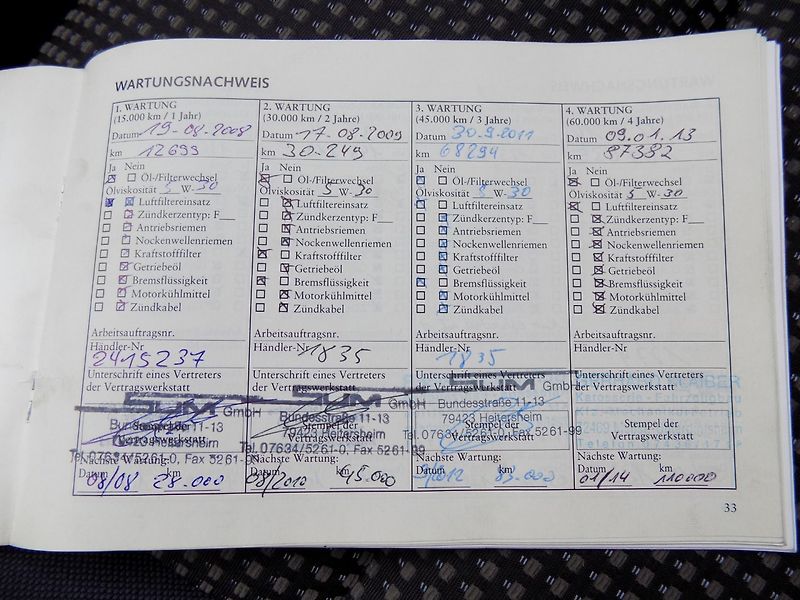 WARTUNGSNACHWEIS
1. WARTUNG
(15.000 km / 1 Jahr)
Datum 19-08-2008
km 12699
Ja Nein
Öl-/Filterwechsel
Ölviskosität 5 W-30
Luftfiltereinsatz
Zündkerzentyp: F___
Antriebsriemen
Nockenwellenriemen
Kraftstofffilter
Getriebeöl
Bremsflüssigkeit
Motorkühlmittel
Zündkabel
Arbeitsauftragsnr.
Händler-Nr
2415237
Unterschrift eines Vertreters
der Vertragswerkstatt
SUM GmbH
Bundesstraße 11-13
79423 Heitersheim
Tel. 07634/5261-0, Fax 5261-99
Stempel der
Vertragswerkstatt
Nächste Wartung:
Datum km
08/08 28.000
2. WARTUNG
(30.000 km / 2 Jahre)
Datum 17-08-2009
km 30.249
Ja Nein
Öl-/Filterwechsel
Ölviskosität 5 W-30
Luftfiltereinsatz
Zündkerzentyp: F___
Antriebsriemen
Nockenwellenriemen
Kraftstofffilter
Getriebeöl
Bremsflüssigkeit
Motorkühlmittel
Zündkabel
Arbeitsauftragsnr.
Händler-Nr 1835
Unterschrift eines Vertreters
der Vertragswerkstatt
SUM GmbH
Bundesstraße 11-13
79423 Heitersheim
Tel. 07634/5261-0, Fax 5261-99
Stempel der
Vertragswerkstatt
Nächste Wartung:
Datum km
08/2010 45.000
3. WARTUNG
(45.000 km / 3 Jahre)
Datum 30-9-2011
km 68294
Ja Nein
Öl-/Filterwechsel
Ölviskosität 5 W-30
Luftfiltereinsatz
Zündkerzentyp: F___
Antriebsriemen
Nockenwellenriemen
Kraftstofffilter
Getriebeöl
Bremsflüssigkeit
Motorkühlmittel
Zündkabel
Arbeitsauftragsnr.
Händler-Nr
1835
Unterschrift eines Vertreters
der Vertragswerkstatt
SUM GmbH
Bundesstraße 11-13
79423 Heitersheim
Tel. 07634/5261-0, Fax 5261-99
Stempel der
Vertragswerkstatt
Nächste Wartung:
Datum km
9/2012 83.000
4. WARTUNG
(60.000 km / 4 Jahre)
Datum 09.01.13
km 87382
Ja Nein
Öl-/Filterwechsel
Ölviskosität 5 W-30
Luftfiltereinsatz
Zündkerzentyp: F___
Antriebsriemen
Nockenwellenriemen
Kraftstofffilter
Getriebeöl
Bremsflüssigkeit
Motorkühlmittel
Zündkabel
Arbeitsauftragsnr.
Händler-Nr
Unterschrift eines Vertreters
der Vertragswerkstatt
Stempel der
Vertragswerkstatt
Nächste Wartung:
Datum km
01/14 110000
33